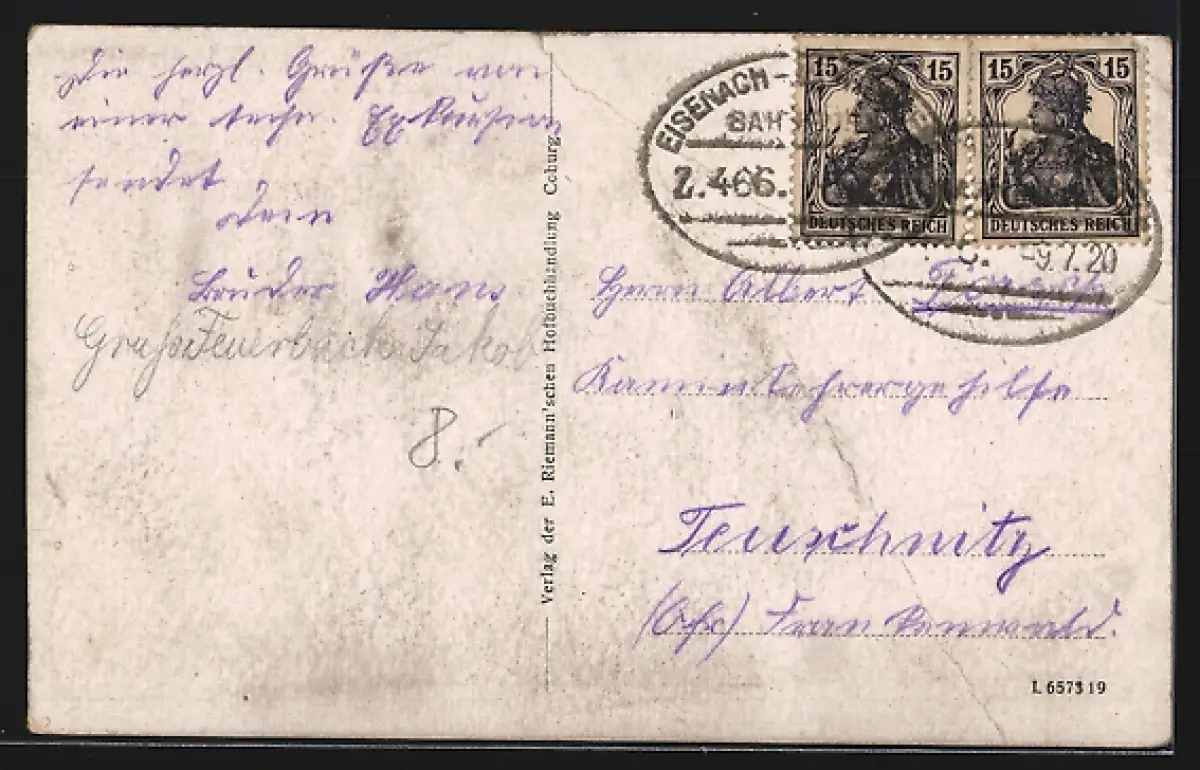 Die herzl. Grüße von
einer techn. Exkursion
sendet
Dein
Bruder Hans
Gruß Feuerbach Jakob
8.-
Verlag der E. Riemann'schen Hofbuchhandlung Coburg.
EISENACH-
BAH
Z.466.
15 15
DEUTSCHES REICH
15 15
DEUTSCHES REICH
-9.7.20
Herrn Albert
Kaminkehrergehilfe
Teuschnitz
(Ofr) Frankenwald.
L 657319